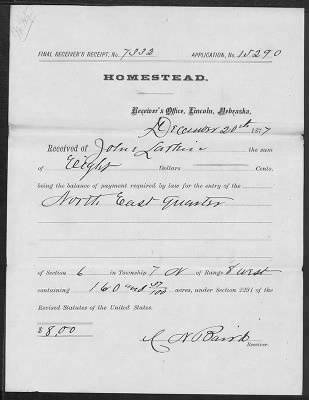 FINAL RECEIVER'S RECEIPT, No. 7332 APPLICATION, No. 15290
HOMESTEAD.
Receiver's Office, Lincoln, Nebraska,
December 20th 1877
Received of John the sum
of Eight Dollars Cents,
being the balance of payment required by law for the entry of the
North East quarter
of Section 6 in Township 7 N of Range 8 west
containing 160 and /100 acres, under Section 2291 of the
Revised Statutes of the United States.
$8,00
Baird
Receiver.